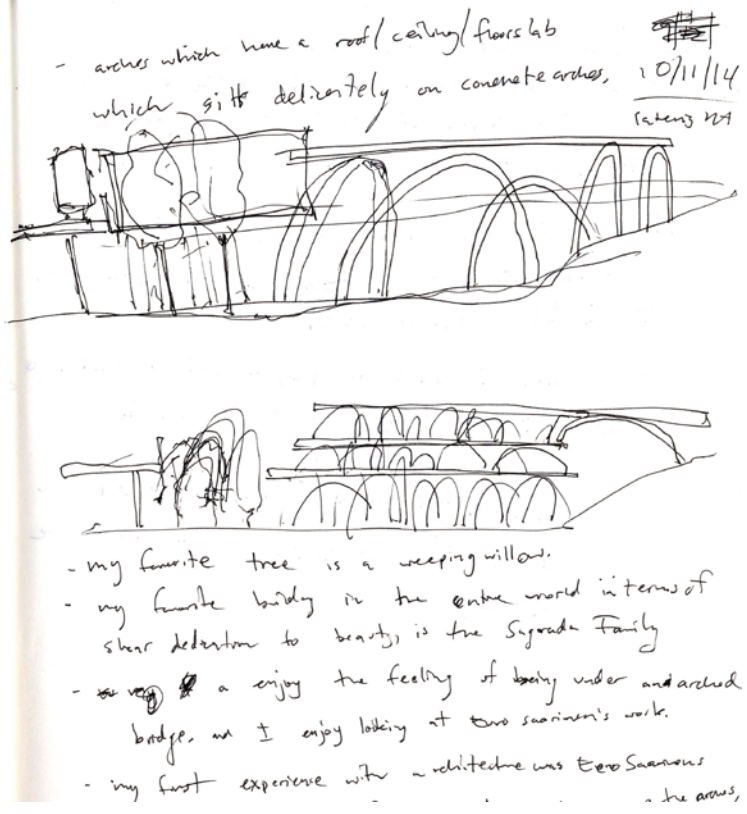 - arches which have a roof/ceiling/floorslab
which sitt delicately on concrete arches.
10/11/14
- my favorite tree is a weeping willow.
- my favorite buildng in the entire world in terms of
shear dedication to beauty, is the Sagrada Family
- a enjoy the feeling of being under and arched
bridge. and I enjoy looking at eero saarinen's work.
- my first experience with architecture was Eero Saarinens
the arches,